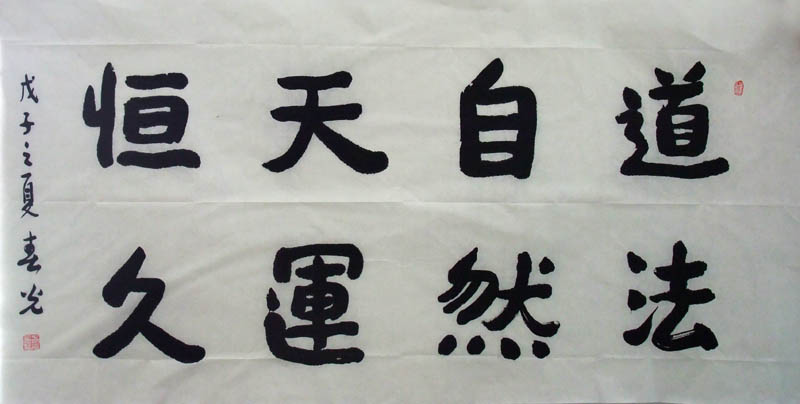 道法
自然
天運
恒久
戊子之夏春光